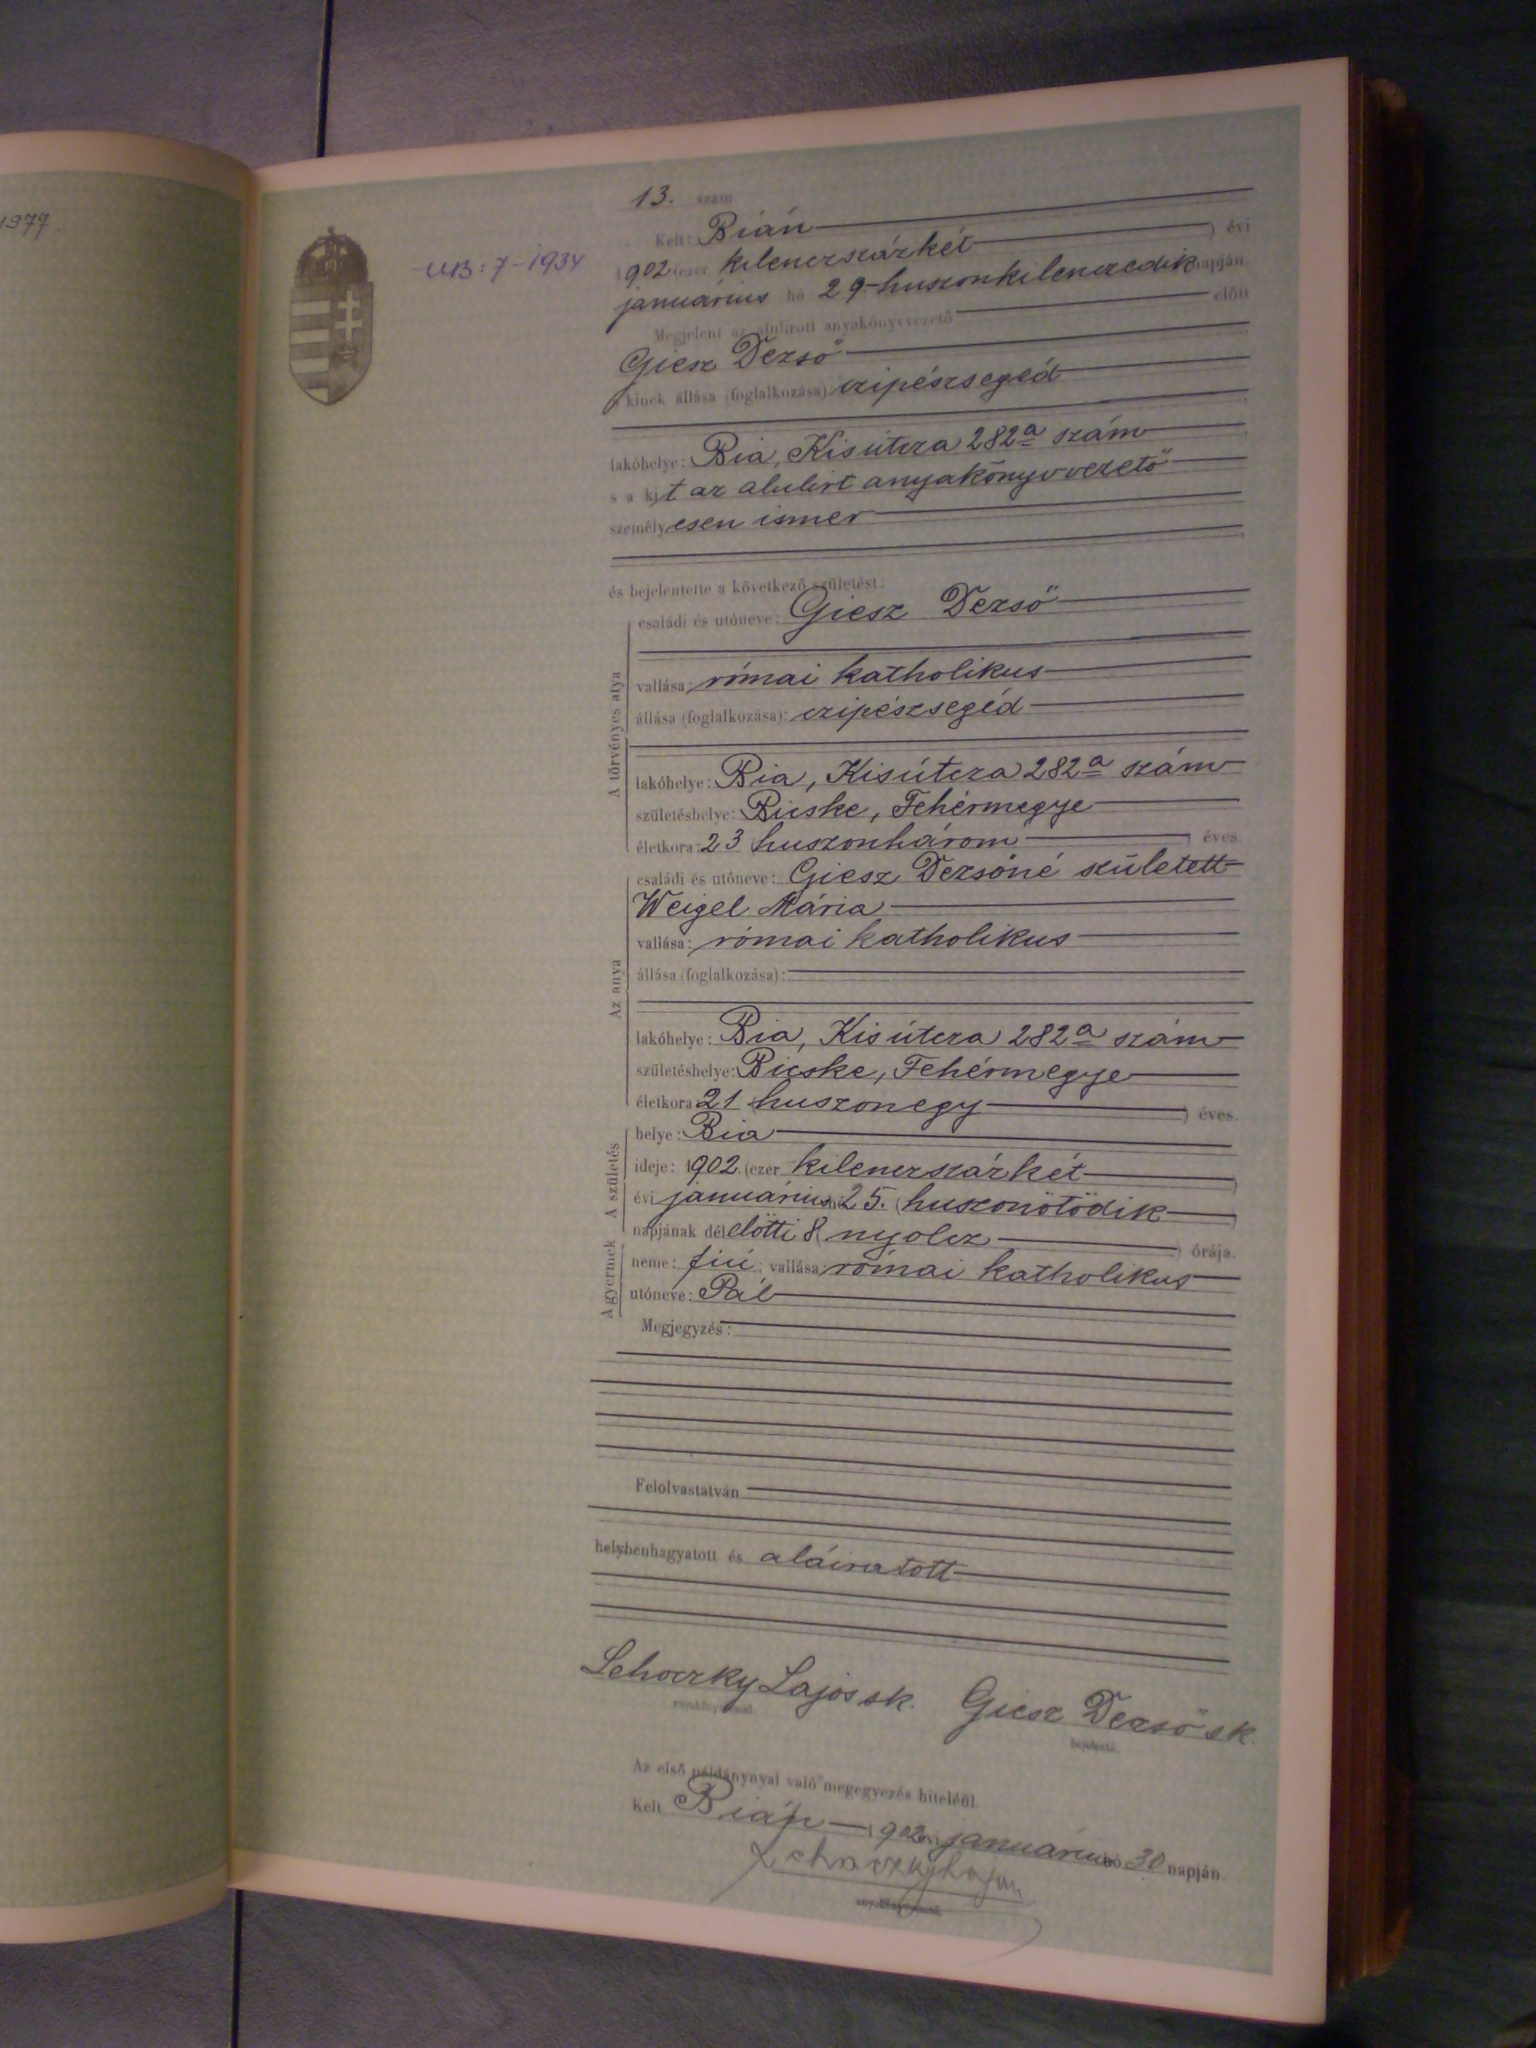 1977.
UB: 7-1934
13. szám
Kelt: Bián
1902 (ezer kilenczszázkét) évi
január​ius hó 29. huszonkilenczedik napján.
Megjelent az alulirott anyakönyvvezető előtt
Giesz Dezső
a kinek állása (foglalkozása): czipészsegéd
lakóhelye: Bia, Kisútcza 282a szám
s a kit az alulirt anyakönyvvezető
személyesen ismer
és bejelentette a következő születést:
A törvényes atya
családi és utóneve: Giesz Dezső
vallása: római katholikus
állása (foglalkozása): czipészsegéd
lakóhelye: Bia, Kisútcza 282a szám
születéshelye: Bicske, Fehérmegye
életkora: 23 (huszonhárom) éves.
Az anya
családi és utóneve: Giesz Dezsőné született
Weigel Mária
vallása: római katholikus
állása (foglalkozása):
lakóhelye: Bia, Kisútcza 282a szám
születéshelye: Bicske, Fehérmegye
életkora: 21 (huszonegy) éves.
A születés
helye: Bia
ideje: 1902. (ezer kilenczszázkét)
évi január​ius hó 25. (huszonötödik)
napjának délelőtti 8 (nyolcz) órája.
A gyermek
neme: fiú; vallása: római katholikus
utóneve: Pál
Megjegyzés:
Felolvastatván
helybenhagyatott és aláiratott
Lehoczky Lajos sk. Giesz Dezső sk.
anyakönyvvezető. bejelentő.
Az első példánynyal való megegyezés hiteléül.
Kelt Bián 1902 évi január​ius hó 30 napján.
Lehoczky Lajos
anyakönyvvezető.